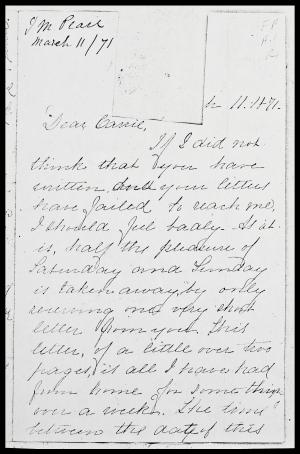 J M Pearl
March 11/71
h 11.1871.
Dear Carrie,
If I did not
think that you have
written and your letters
have failed to reach me,
I should feel badly. As it
is, half the pleasure of
Saturday and Sunday
is taken away, by only
receiving one very short
letter from you. This
letter, of a little over two
pages, is all I have had
from home for something
over a week. The time
between the date of this